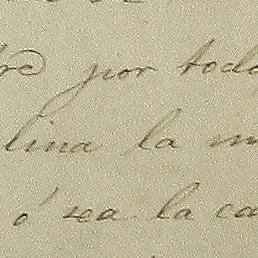 por todo
lina la
ó sea la ca